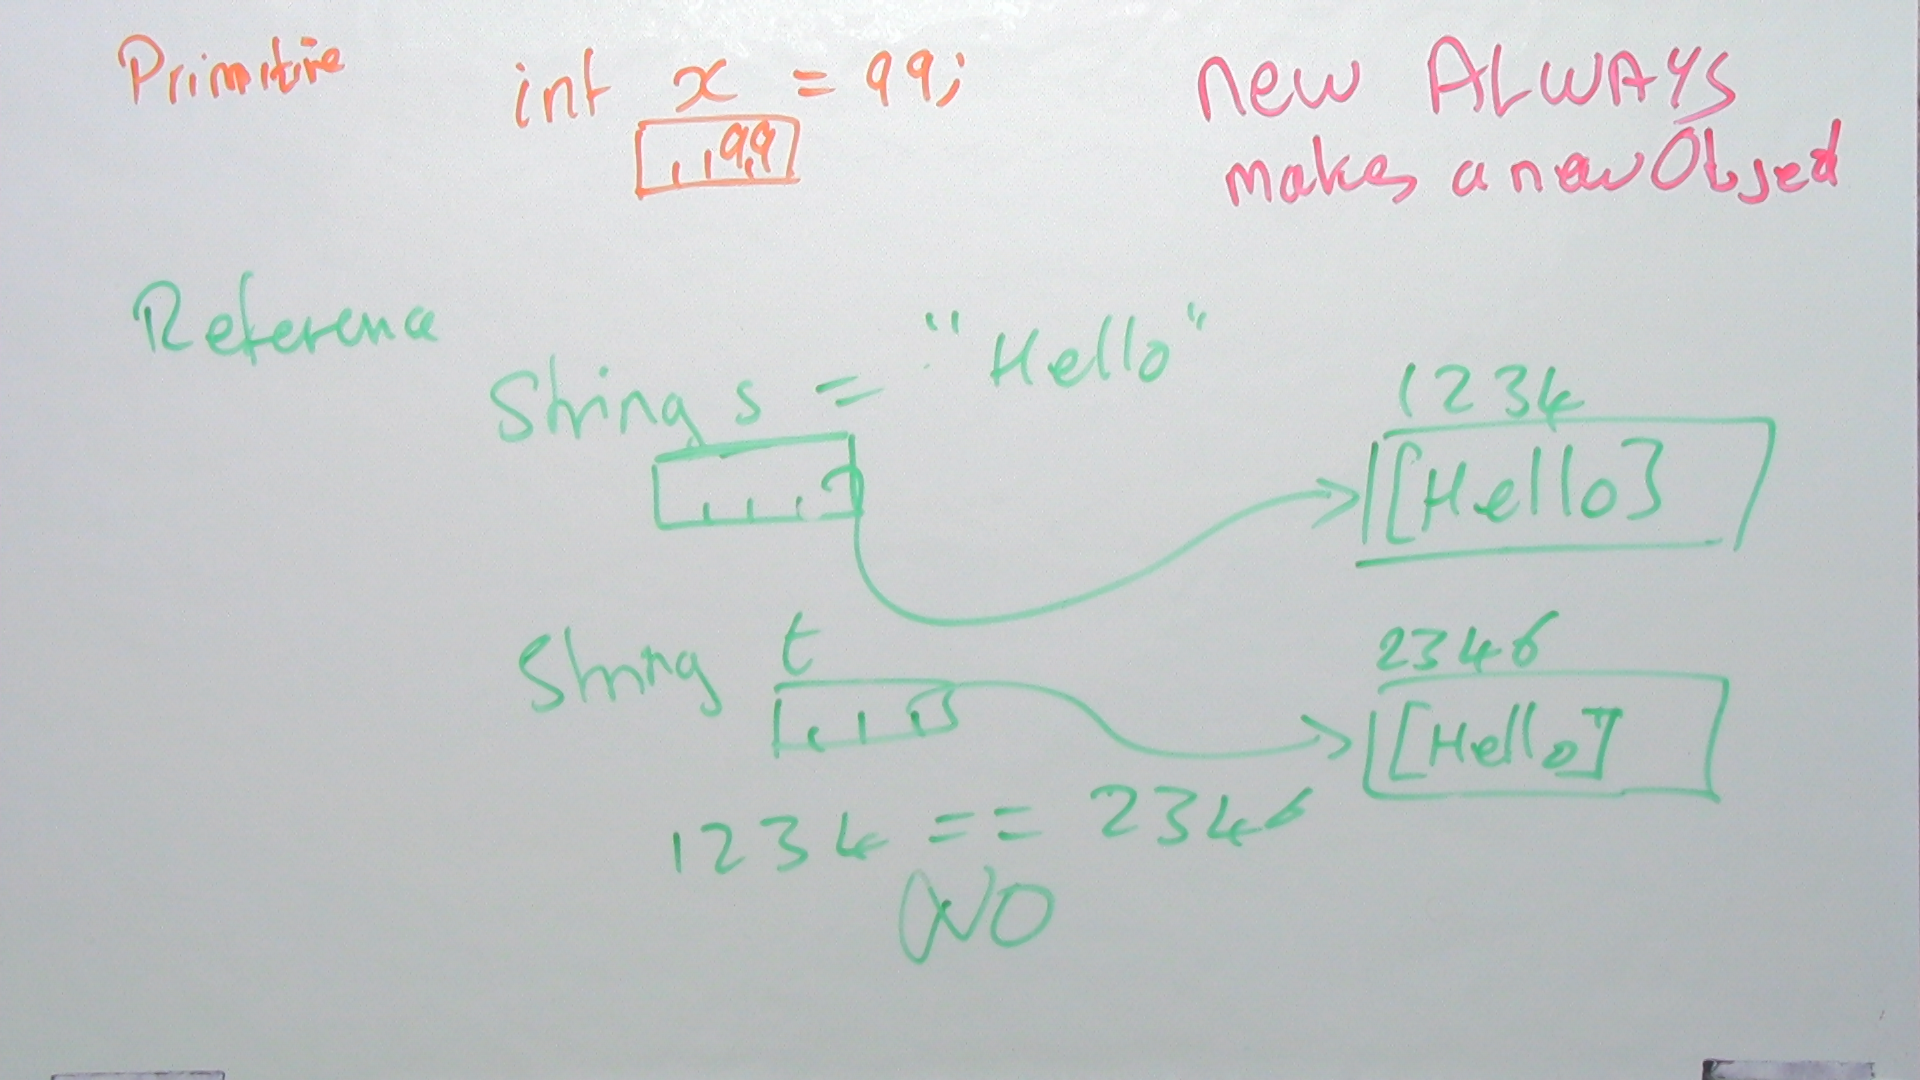 Primitive int x = 99;
99
new ALWAYS
makes a new Object
Reference
String s = "Hello"
1234
[Hello]
String t
2346
[Hello]
1234 == 2346
NO